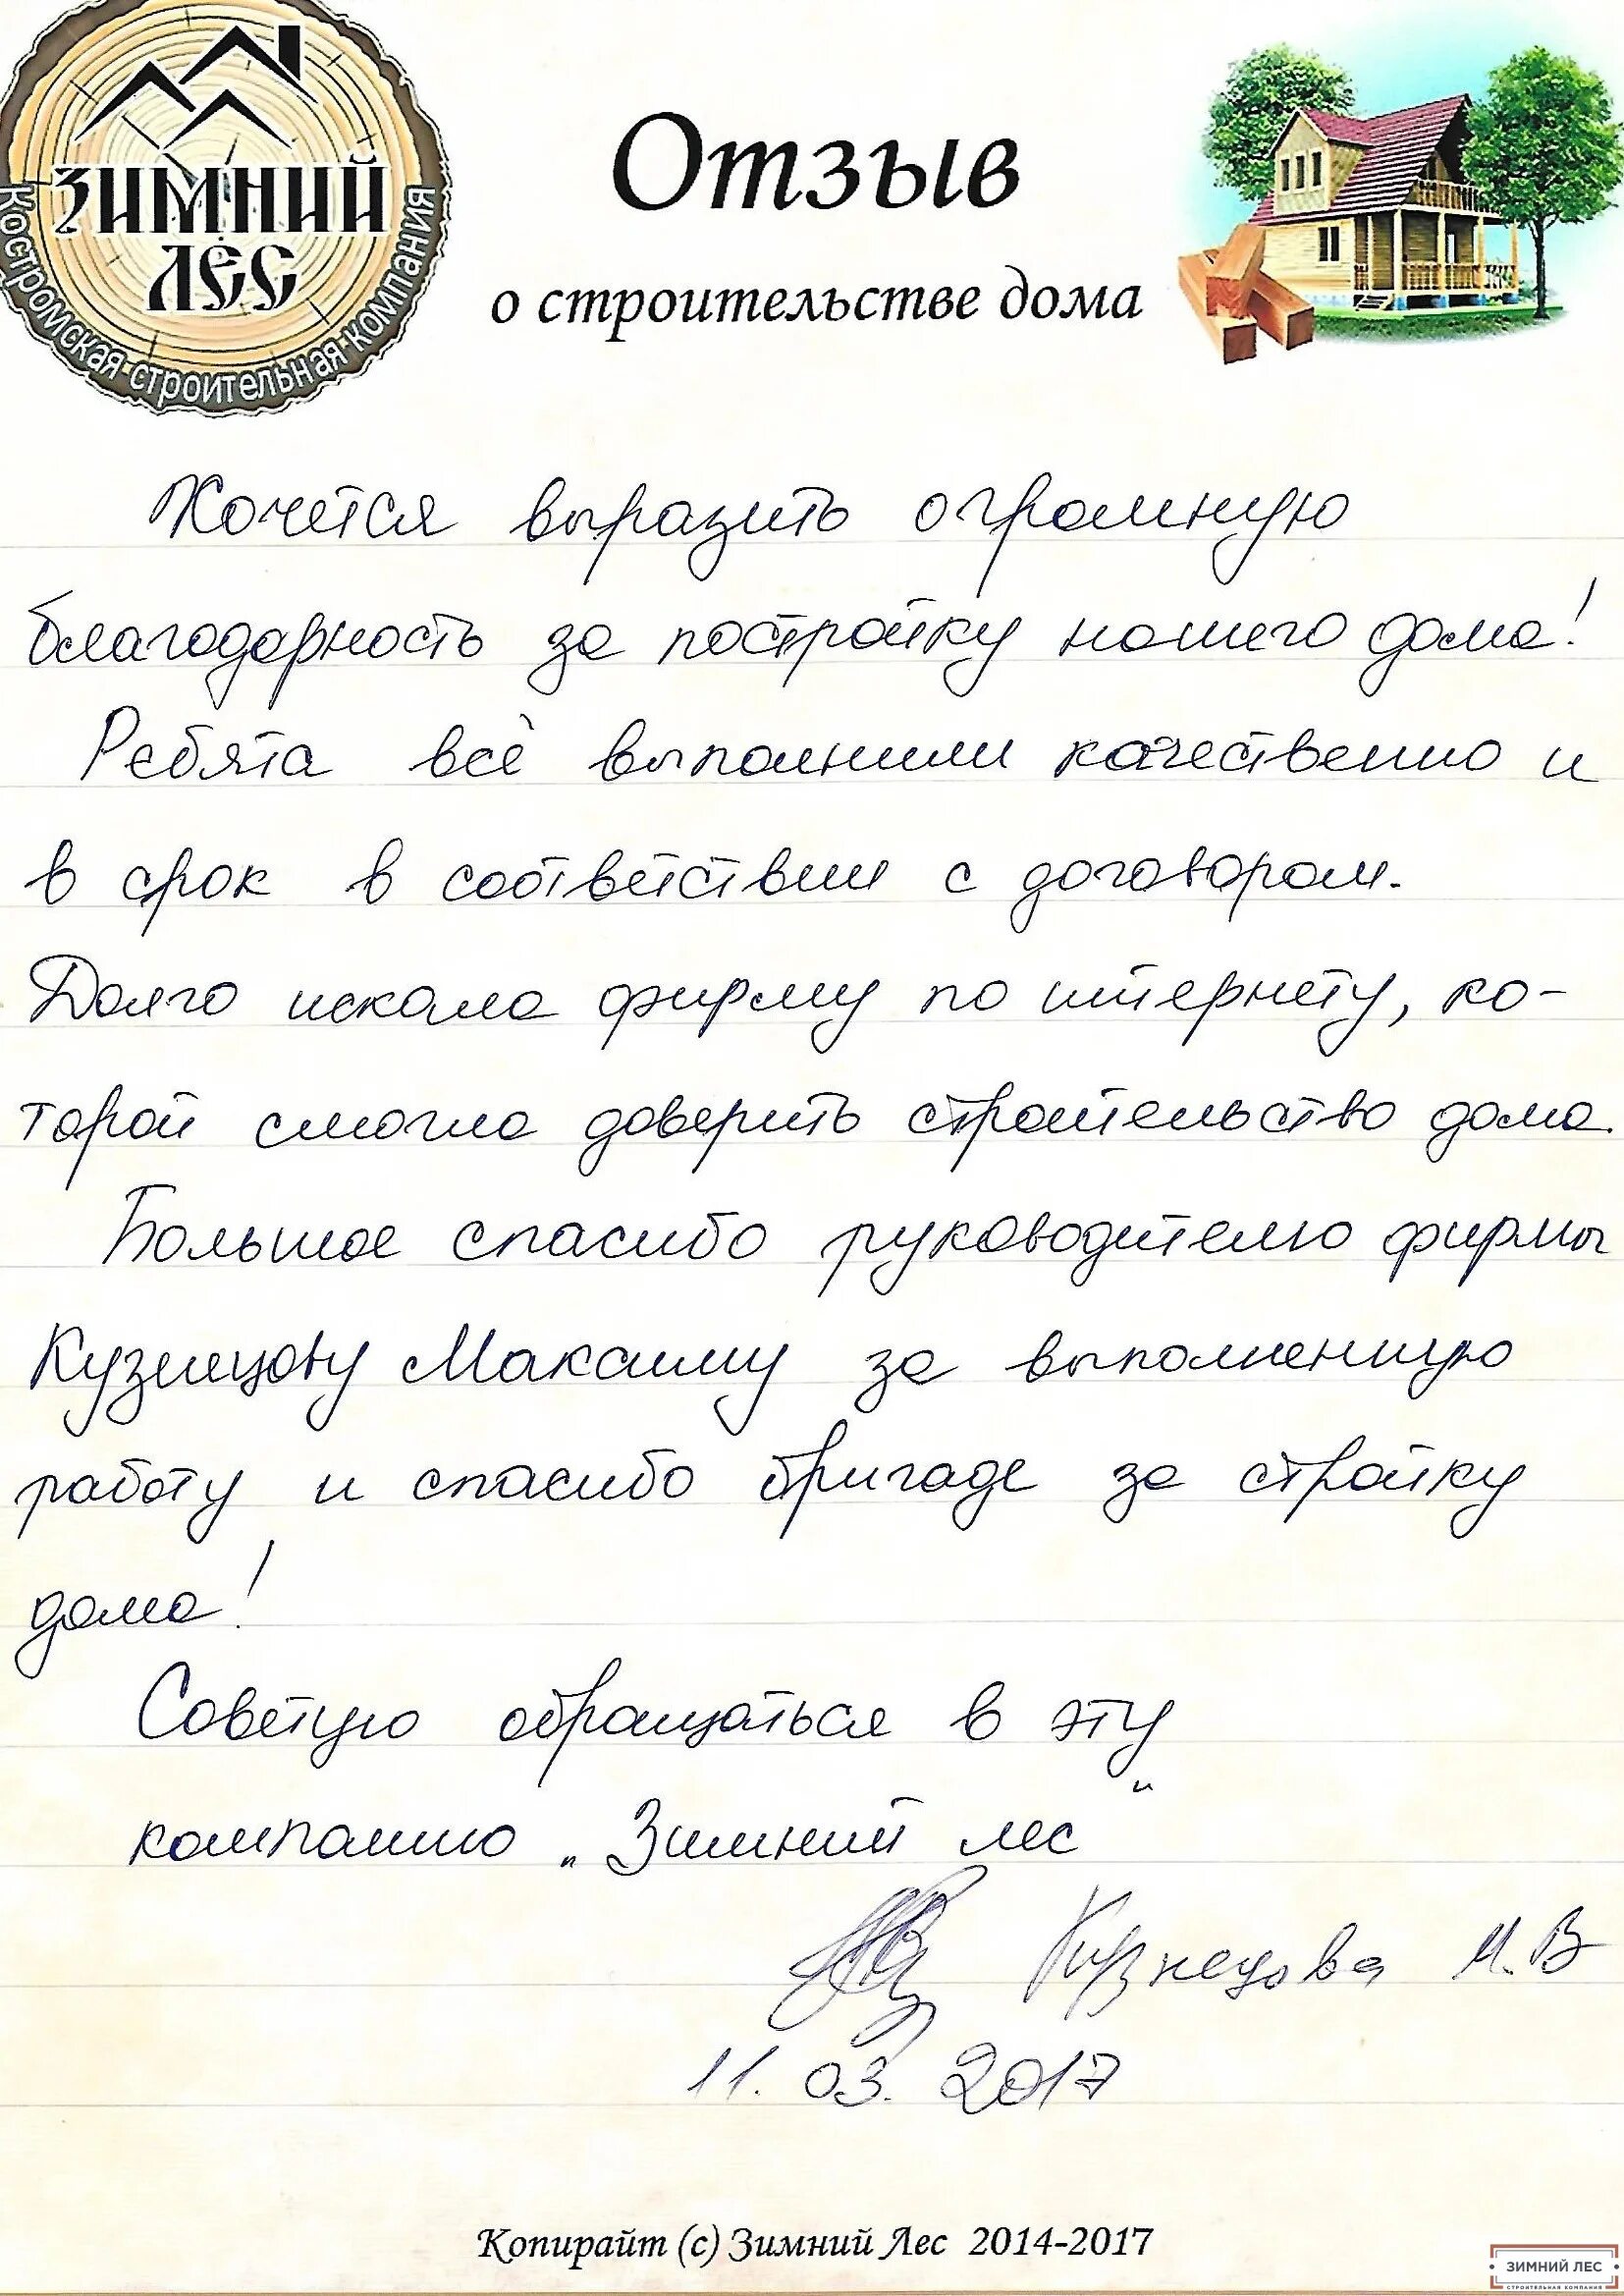 ЗИМНИЙ
ЛЕС
Костромская строительная компания
Отзыв
о строительстве дома
Хочется выразить огромную
благодарность за постройку нашего дома!
Ребята всё выполнили качественно и
в срок в соответствии с договором.
Долго искала фирму по интернету, ко-
торой смогла доверить строительство дома.
Большое спасибо руководителю фирмы
Кузнецову Максиму за выполненную
работу и спасибо бригаде за стройку
дома!
Советую обращаться в эту
компанию „Зимний лес"
Кузнецова М.В
11.03.2017
Копирайт (с) Зимний Лес 2014-2017
ЗИМНИЙ ЛЕС
СТРОИТЕЛЬНАЯ КОМПАНИЯ